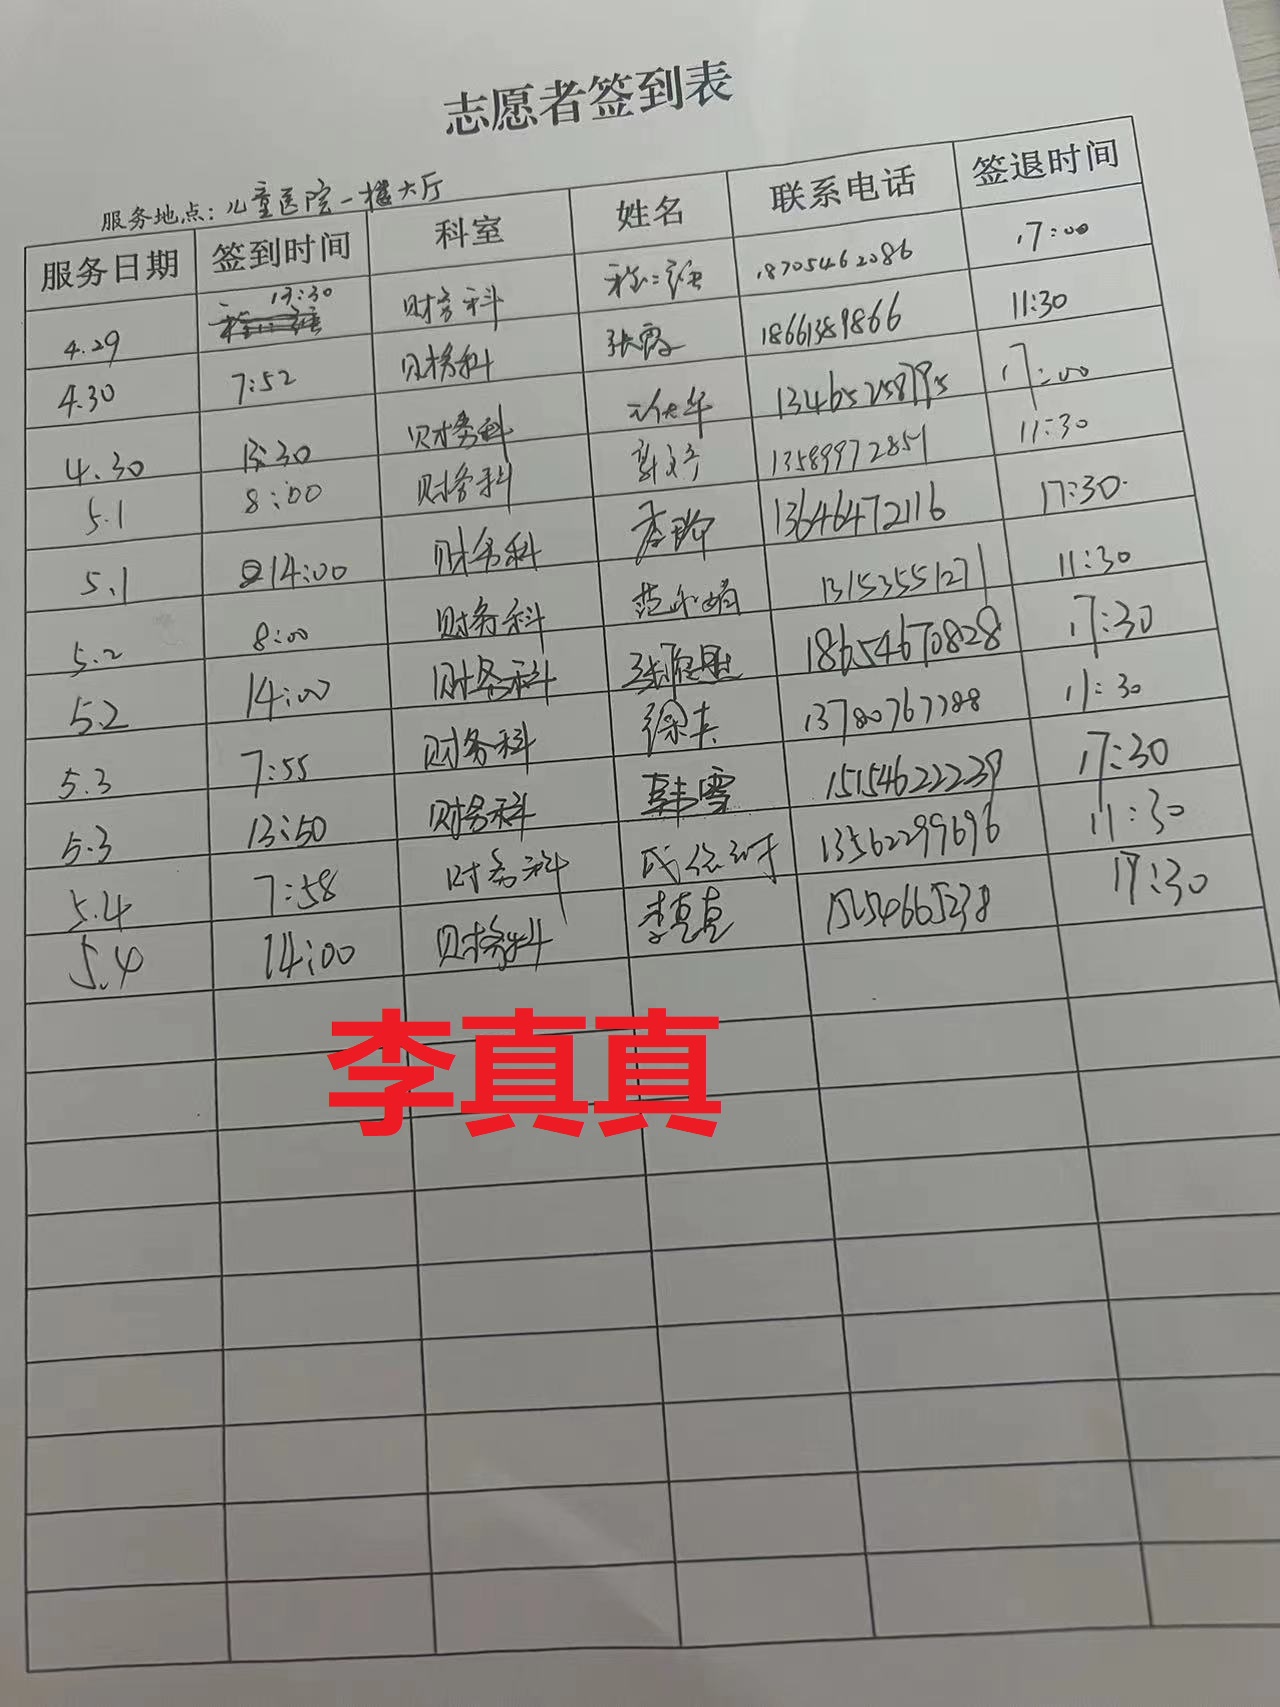 志愿者签到表
服务地点：儿童医院一楼大厅
服务日期 签到时间 科室 姓名 联系电话 签退时间
4.29 13:30 财务科 18705462086 17:00
4.30 7:52 财务科 张霞 18661389866 11:30
4.30 13:30 财务科 13465258795 17:00
5.1 8:00 财务科 13589972851 11:30
5.1 14:00 财务科 李珍 13646472116 17:30
5.2 8:00 财务科 13153551271 11:30
5.2 14:00 财务科 18654670828 17:30
5.3 7:55 财务科 徐夫 13780767288 11:30
5.3 13:50 财务科 韩雪 15154622239 17:30
5.4 7:58 财务科 13562299696 11:30
5.4 14:00 财务科 李真真 15254665238 17:30
李真真